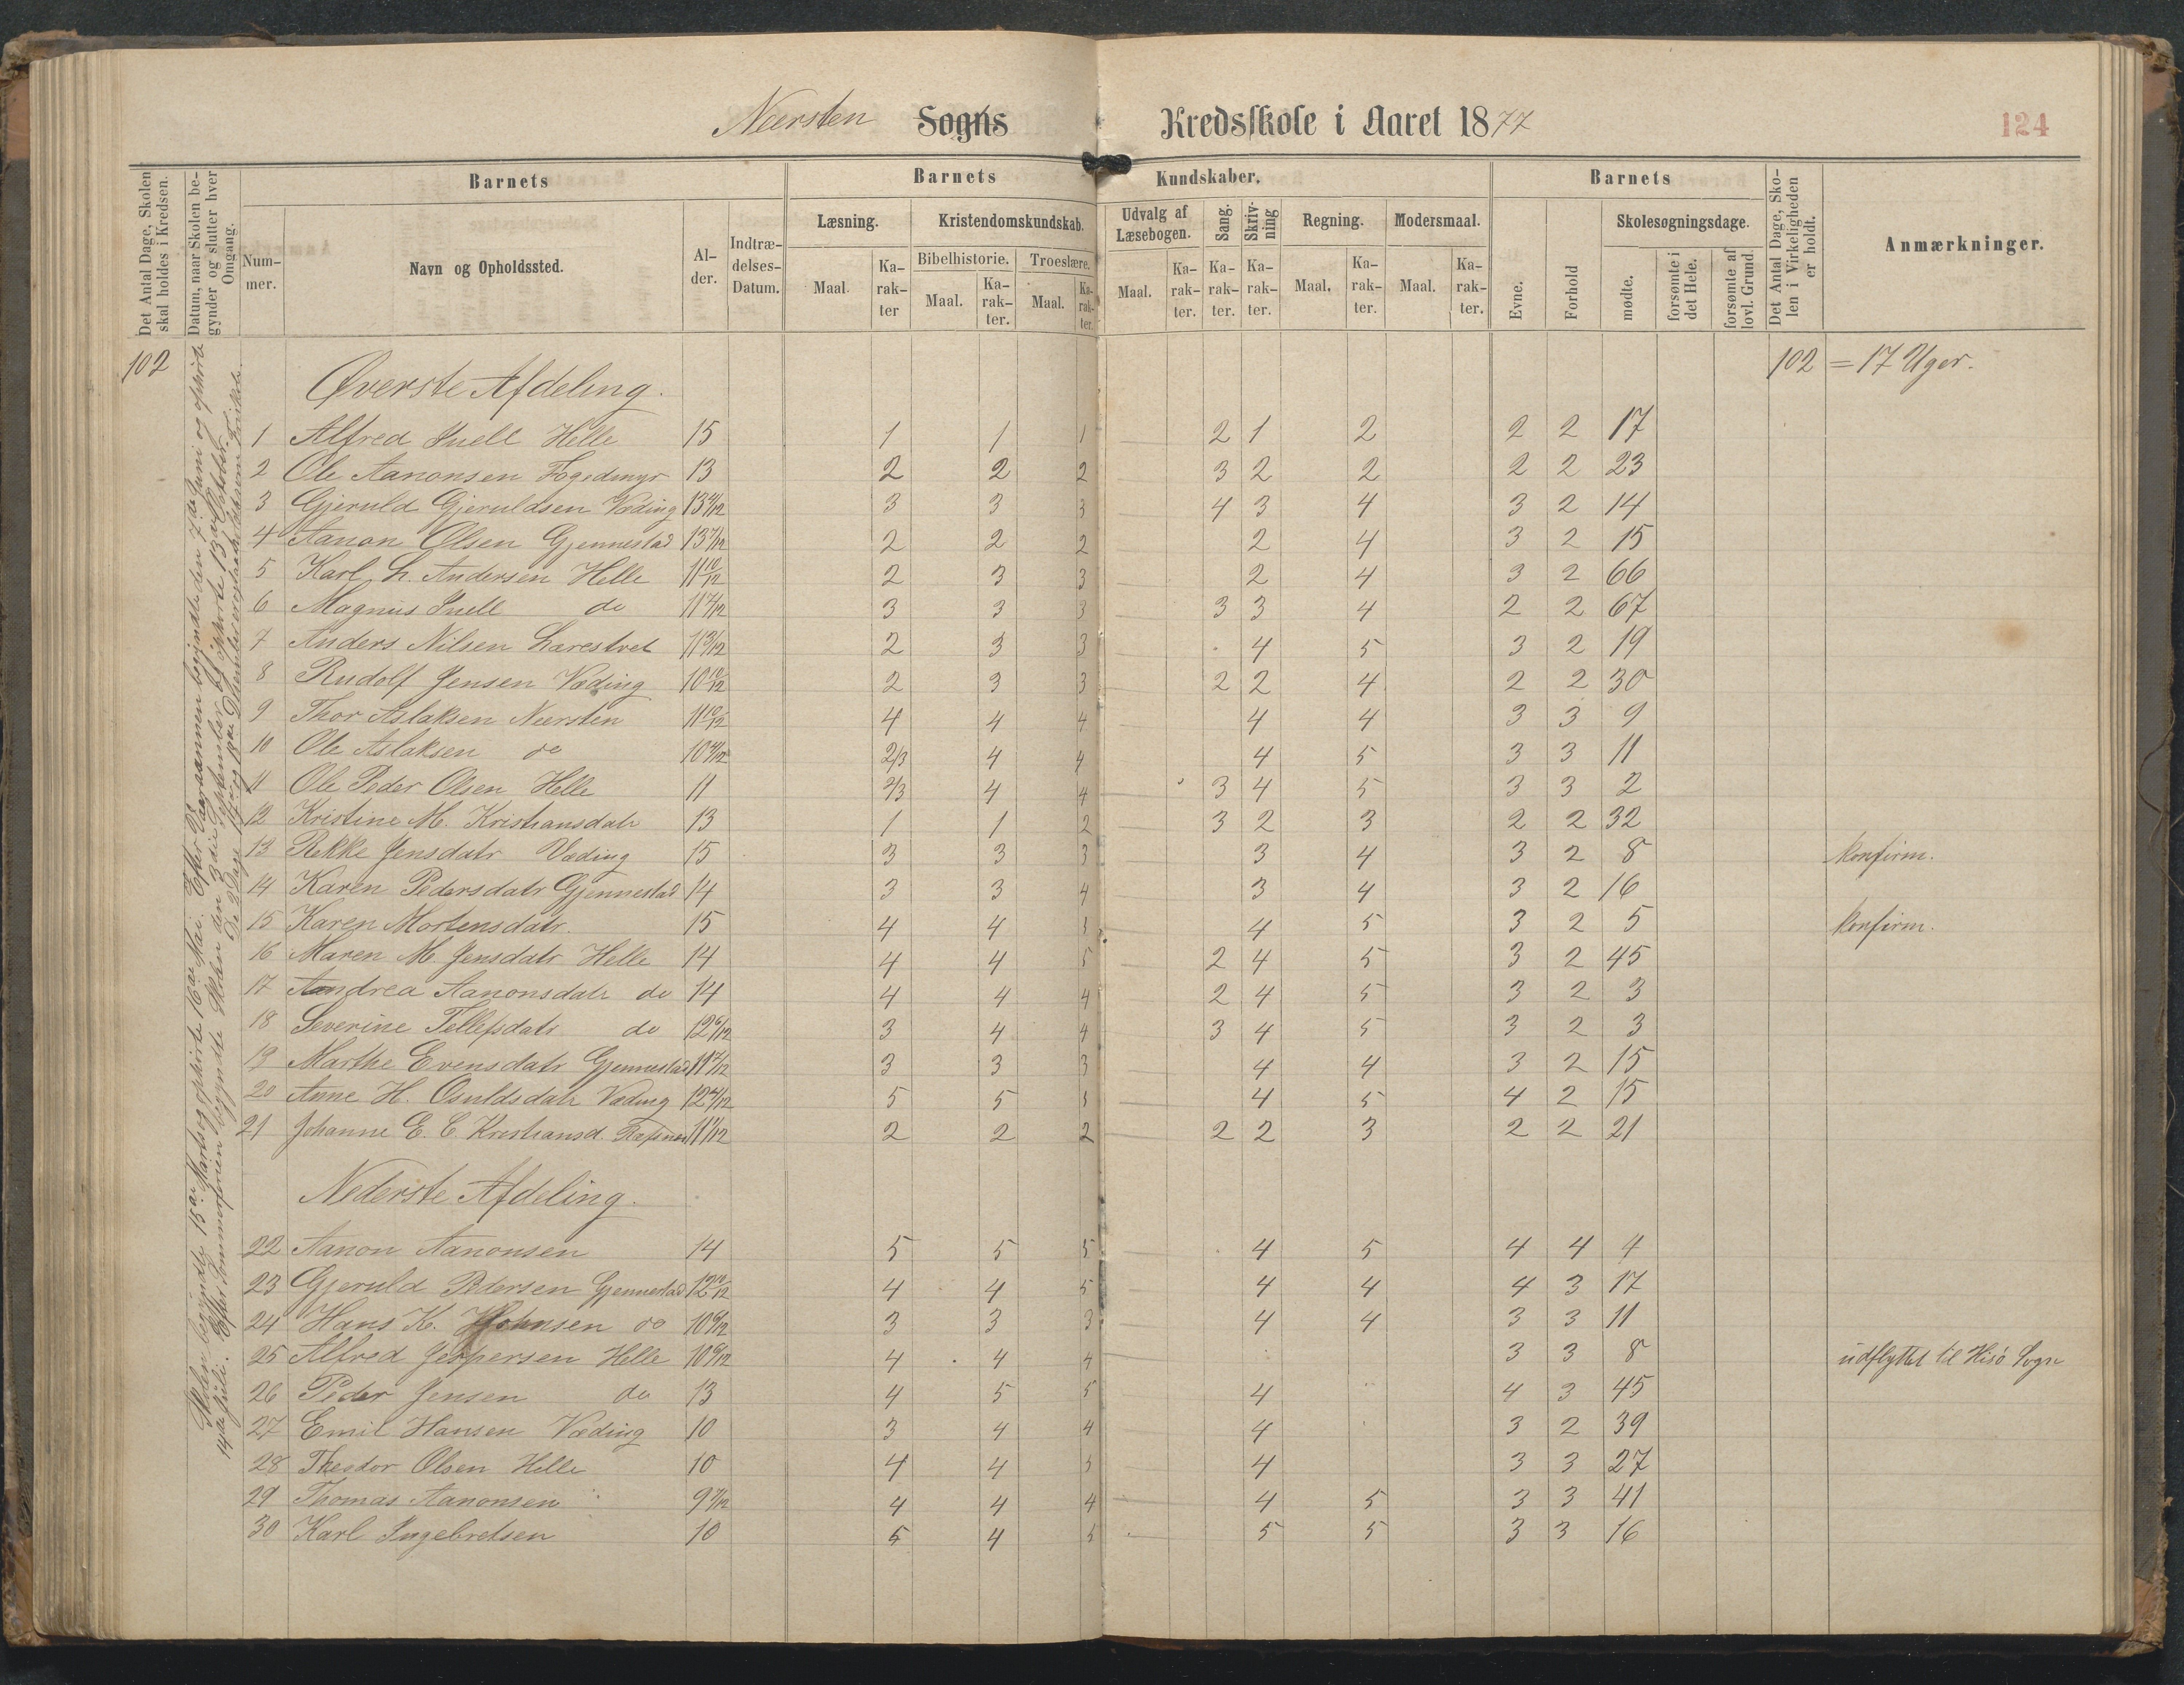 Neersten Sogns Kredsskole i Aaret 1877
124
Det Antal Dage, Skolen skal holdes i Kredsen.
Datum, naar Skolen begynder og slutter hver Omgang.
Barnets
Nummer.
Navn og Opholdssted.
Alder.
Indtrædelses-Datum.
Barnets Kundskaber.
Læsning.
Maal.
Karakter
Kristendomskundskab.
Bibelhistorie.
Maal.
Karakter.
Troeslære.
Maal.
Karakter.
Udvalg af Læsebogen.
Maal.
Karakter.
Sang.
Karakter.
Skrivning
Karakter.
Regning.
Maal.
Karakter.
Modersmaal.
Maal.
Karakter.
Barnets
Evne.
Forhold
Skolesøgningsdage.
mødte.
forsømte i det Hele.
forsømte af lovl. Grund
Det Antal Dage, Skolen i Virkeligheden er holdt.
Anmærkninger.
102
102 = 17 Uger.
Skolen begyndte 15de Marts og ophørte 16de Mai. Efter Vaaraannen begyndte den 7de Juni og ophørte
14de Juli. Efter Sommerferien begyndte Skolen den 3die September og ophørte 13de Oktober.
Øverste Afdeling.
1 Alfred Juell Helle 15 1 1 1 2 1 2 2 2 17
2 Ole Aanonsen Fogedmyr 13 2 2 2 3 2 2 2 2 23
3 Gjeruld Gjeruldsen Væding 13 9/12 3 3 3 4 3 4 3 2 14
4 Aanon Olsen Gjennestad 13 7/12 2 2 2 2 4 3 2 15
5 Karl L. Andersen Helle 11 10/12 2 3 3 2 4 3 2 66
6 Magnus Juell do 11 7/12 3 3 3 3 3 4 2 2 67
7 Anders Nilsen Larestvet 11 3/12 2 3 3 4 5 3 2 19
8 Rudolf Jensen Væding 10 10/12 2 3 3 2 2 4 2 2 30
9 Thor Aslaksen Neersten 11 10/12 4 4 4 4 4 3 3 9
10 Ole Aslaksen do 10 4/12 2/3 4 4 4 5 3 3 11
11 Ole Peder Olsen Helle 11 2/3 4 4 3 4 5 3 3 2
12 Kristine M. Kristiansdatr 13 1 1 2 3 2 3 2 2 32
13 Rekke Jensdatr Væding 15 3 3 3 3 4 3 2 8 konfirm.
14 Karen Pedersdatr Gjennestad 14 3 3 4 3 4 3 2 16
15 Karen Mortensdatr. 15 4 4 4 5 3 2 5 konfirm.
16 Maren M. Jensdatr Helle 14 4 4 5 2 4 5 3 2 45
17 Andrea Aanonsdatr do 14 4 4 4 2 4 5 3 2 3
18 Severine Tellefsdatr do 12 6/12 3 4 4 3 4 5 3 2 3
19 Marthe Evensdatr Gjennestad 11 7/12 3 3 3 4 4 3 2 15
20 Anne H. Osuldsdatr Væding 12 4/12 5 5 4 5 4 2 15
21 Johanne E. C. Kristiansd. 11 1/12 2 2 2 2 2 3 2 2 21
Nederste Afdeling.
22 Aanon Aanonsen 14 5 5 5 4 5 4 4 4
23 Gjeruld Pedersen Gjennestad 12 10/12 4 4 5 4 4 4 3 17
24 Hans K. Johnsen do 10 6/12 3 3 3 4 4 3 3 11
25 Alfred Jespersen Helle 10 6/12 4 4 4 3 3 8 udflyttet til Hisö Sogn
26 Peder Jensen do 13 4 5 5 4 4 3 45
27 Emil Hansen Væding 10 3 4 4 4 3 2 39
28 Theodor Olsen Helle 10 4 4 5 4 3 3 27
29 Thomas Aanonsen 9 7/12 4 4 4 4 5 3 3 41
30 Karl Ingebretsen 10 5 4 5 5 5 3 3 16